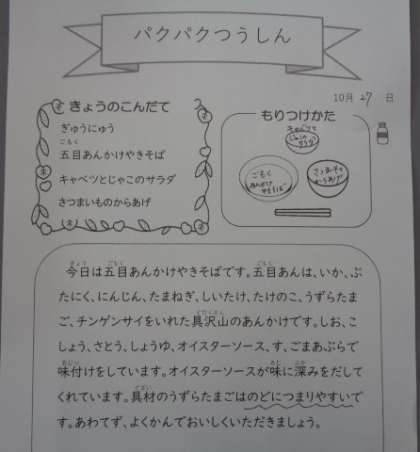 パクパクつうしん
10月27日
きょうのこんだて
ぎゅうにゅう
ごもく
五目あんかけやきそば
キャベツとじゃこのサラダ
さつまいものからあげ
もりつけかた
キャベツと
じゃこの
サラダ
ごもく
あんかけ
やきそば
さつまいもの
からあげ
きょう ごもく ごもく
今日は五目あんかけやきそばです。五目あんは、いか、ぶ
たにく、にんじん、たまねぎ、しいたけ、たけのこ、うずらたま
ぐだくさん
ご、チンゲンサイをいれた具沢山のあんかけです。しお、こ
しょう、さとう、しょうゆ、オイスターソース、す、ごまあぶらで
あじつ あじ ふか
味付けをしています。オイスターソースが味に深みをだして
ぐざい
くれています。具材のうずらたまごはのどにつまりやすいで
す。あわてず、よくかんでおいしくいただきましょう。